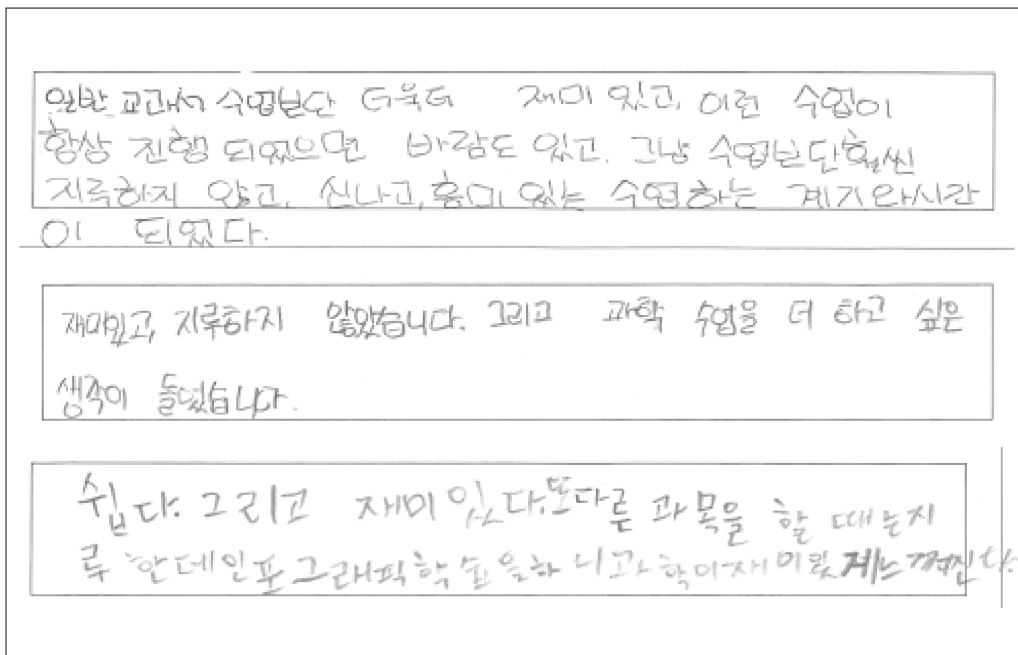 일반 교과서 수업보단 더욱더 재미 있고, 이런 수업이
항상 진행 되었으면 바람도 있고. 그냥 수업보단 훨씬
지루하지 않고, 신나고, 흥미 있는 수업하는 계기와시간
이 되었다.
재미있고, 지루하지 않았습니다. 그리고 과학 수업을 더 하고 싶은
생각이 들었습니다.
쉽다. 그리고 재미있다. 또다른 과목을 할 때는지
루 한데인포그래픽학습을하니과학이재미있게느껴진다.